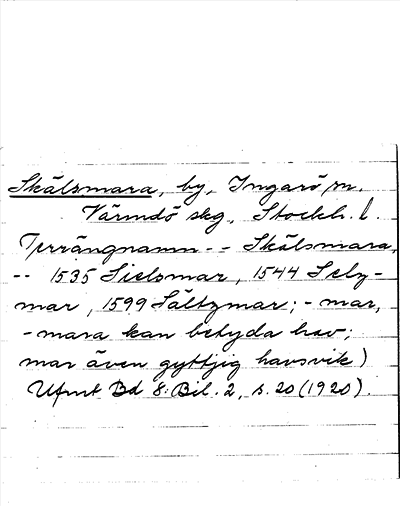 Skälsmara, by, Ingarö sn.
Värmdö skg, Stockh. l.
Terrängnamn -- Skälsmara,
-- 1535 Sielsmar, 1544 Selz-
mar, 1599 Sältzmar; - mar,
-mara kan betyda hav;
mar även gyttjig havsvik)
Ufmt Bd 8: Bil. 2, s. 20 (1920).